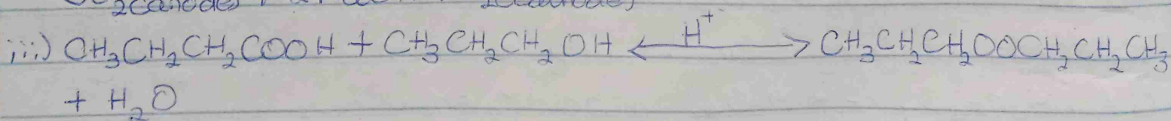 iii) CH₃CH₂CH₂COOH + CH₃CH₂CH₂OH <—H⁺—> CH₃CH₂CH₂OOCH₂CH₂CH₃
+ H₂O